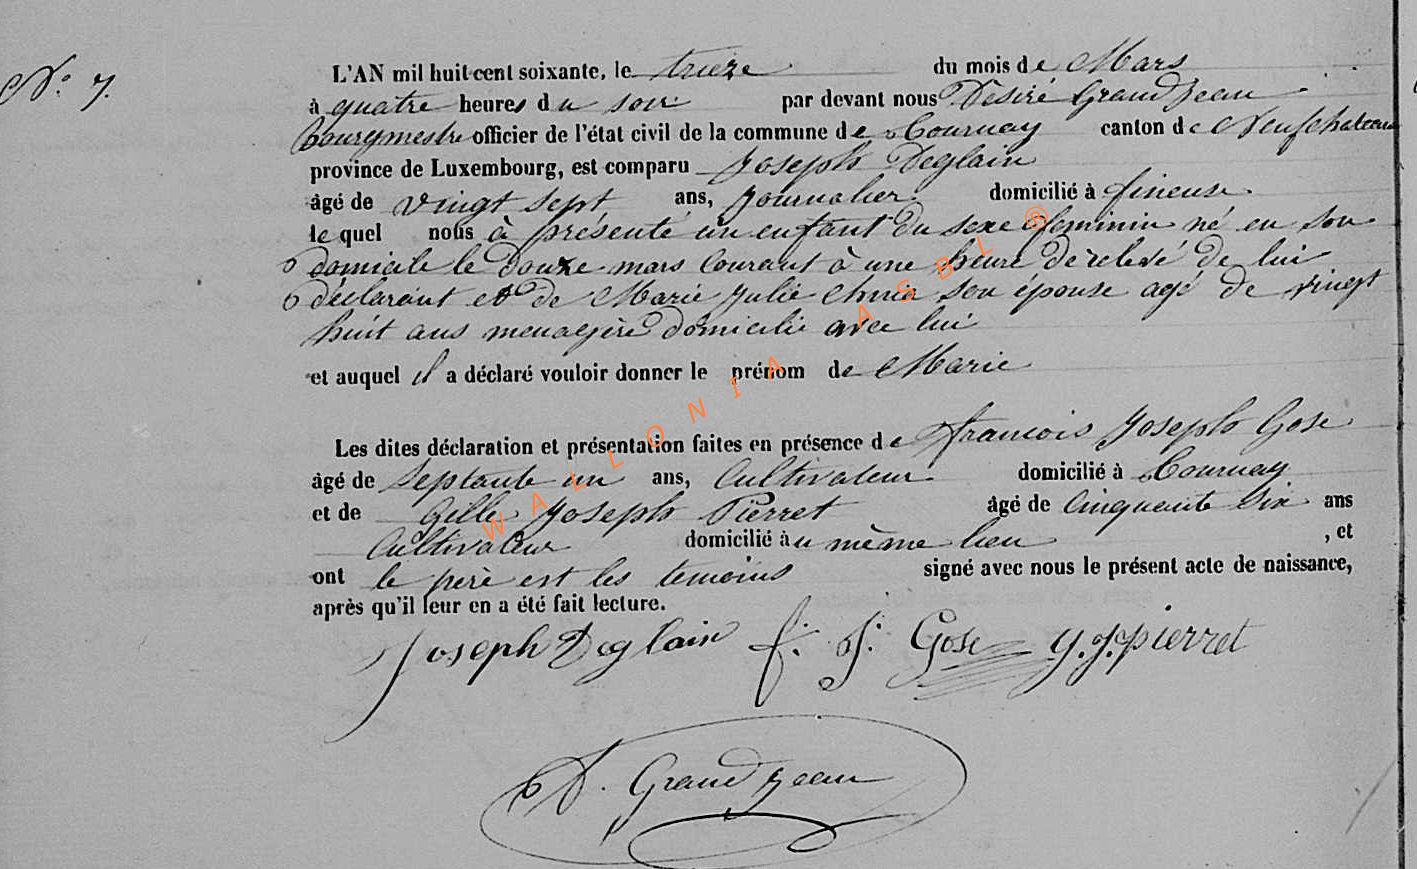 N° 7.
L'AN mil huit cent soixante, le treize du mois de Mars
à quatre heures du soir par devant nous Désiré Grandjean
bourgmestre officier de l'état civil de la commune de Tournay canton de Neufchateau
province de Luxembourg, est comparu Joseph Deglain
âgé de vingt sept ans, Journalier domicilié à fineuse
le quel nous à présenté un enfant du sexe feminin né en son
domicile le douze mars Courant à une heure de relevé de lui
déclarant et de Marie Julie son épouse agé de vingt
huit ans menagère domicilié avec lui
et auquel il a déclaré vouloir donner le prénom de Marie
Les dites déclaration et présentation faites en présence de francois Joseph Gose
âgé de Septante un ans, Cultivateur domicilié à Tournay
et de Gille Joseph Pierret âgé de Cinquente Six ans
Cultivateur domicilié àu même lieu , et
ont le père est les temoins signé avec nous le présent acte de naissance,
après qu'il leur en a été fait lecture.
Joseph Deglain f. J. Gose g. J. pierret
D. Grandjean
WALLONIA ASBL ®